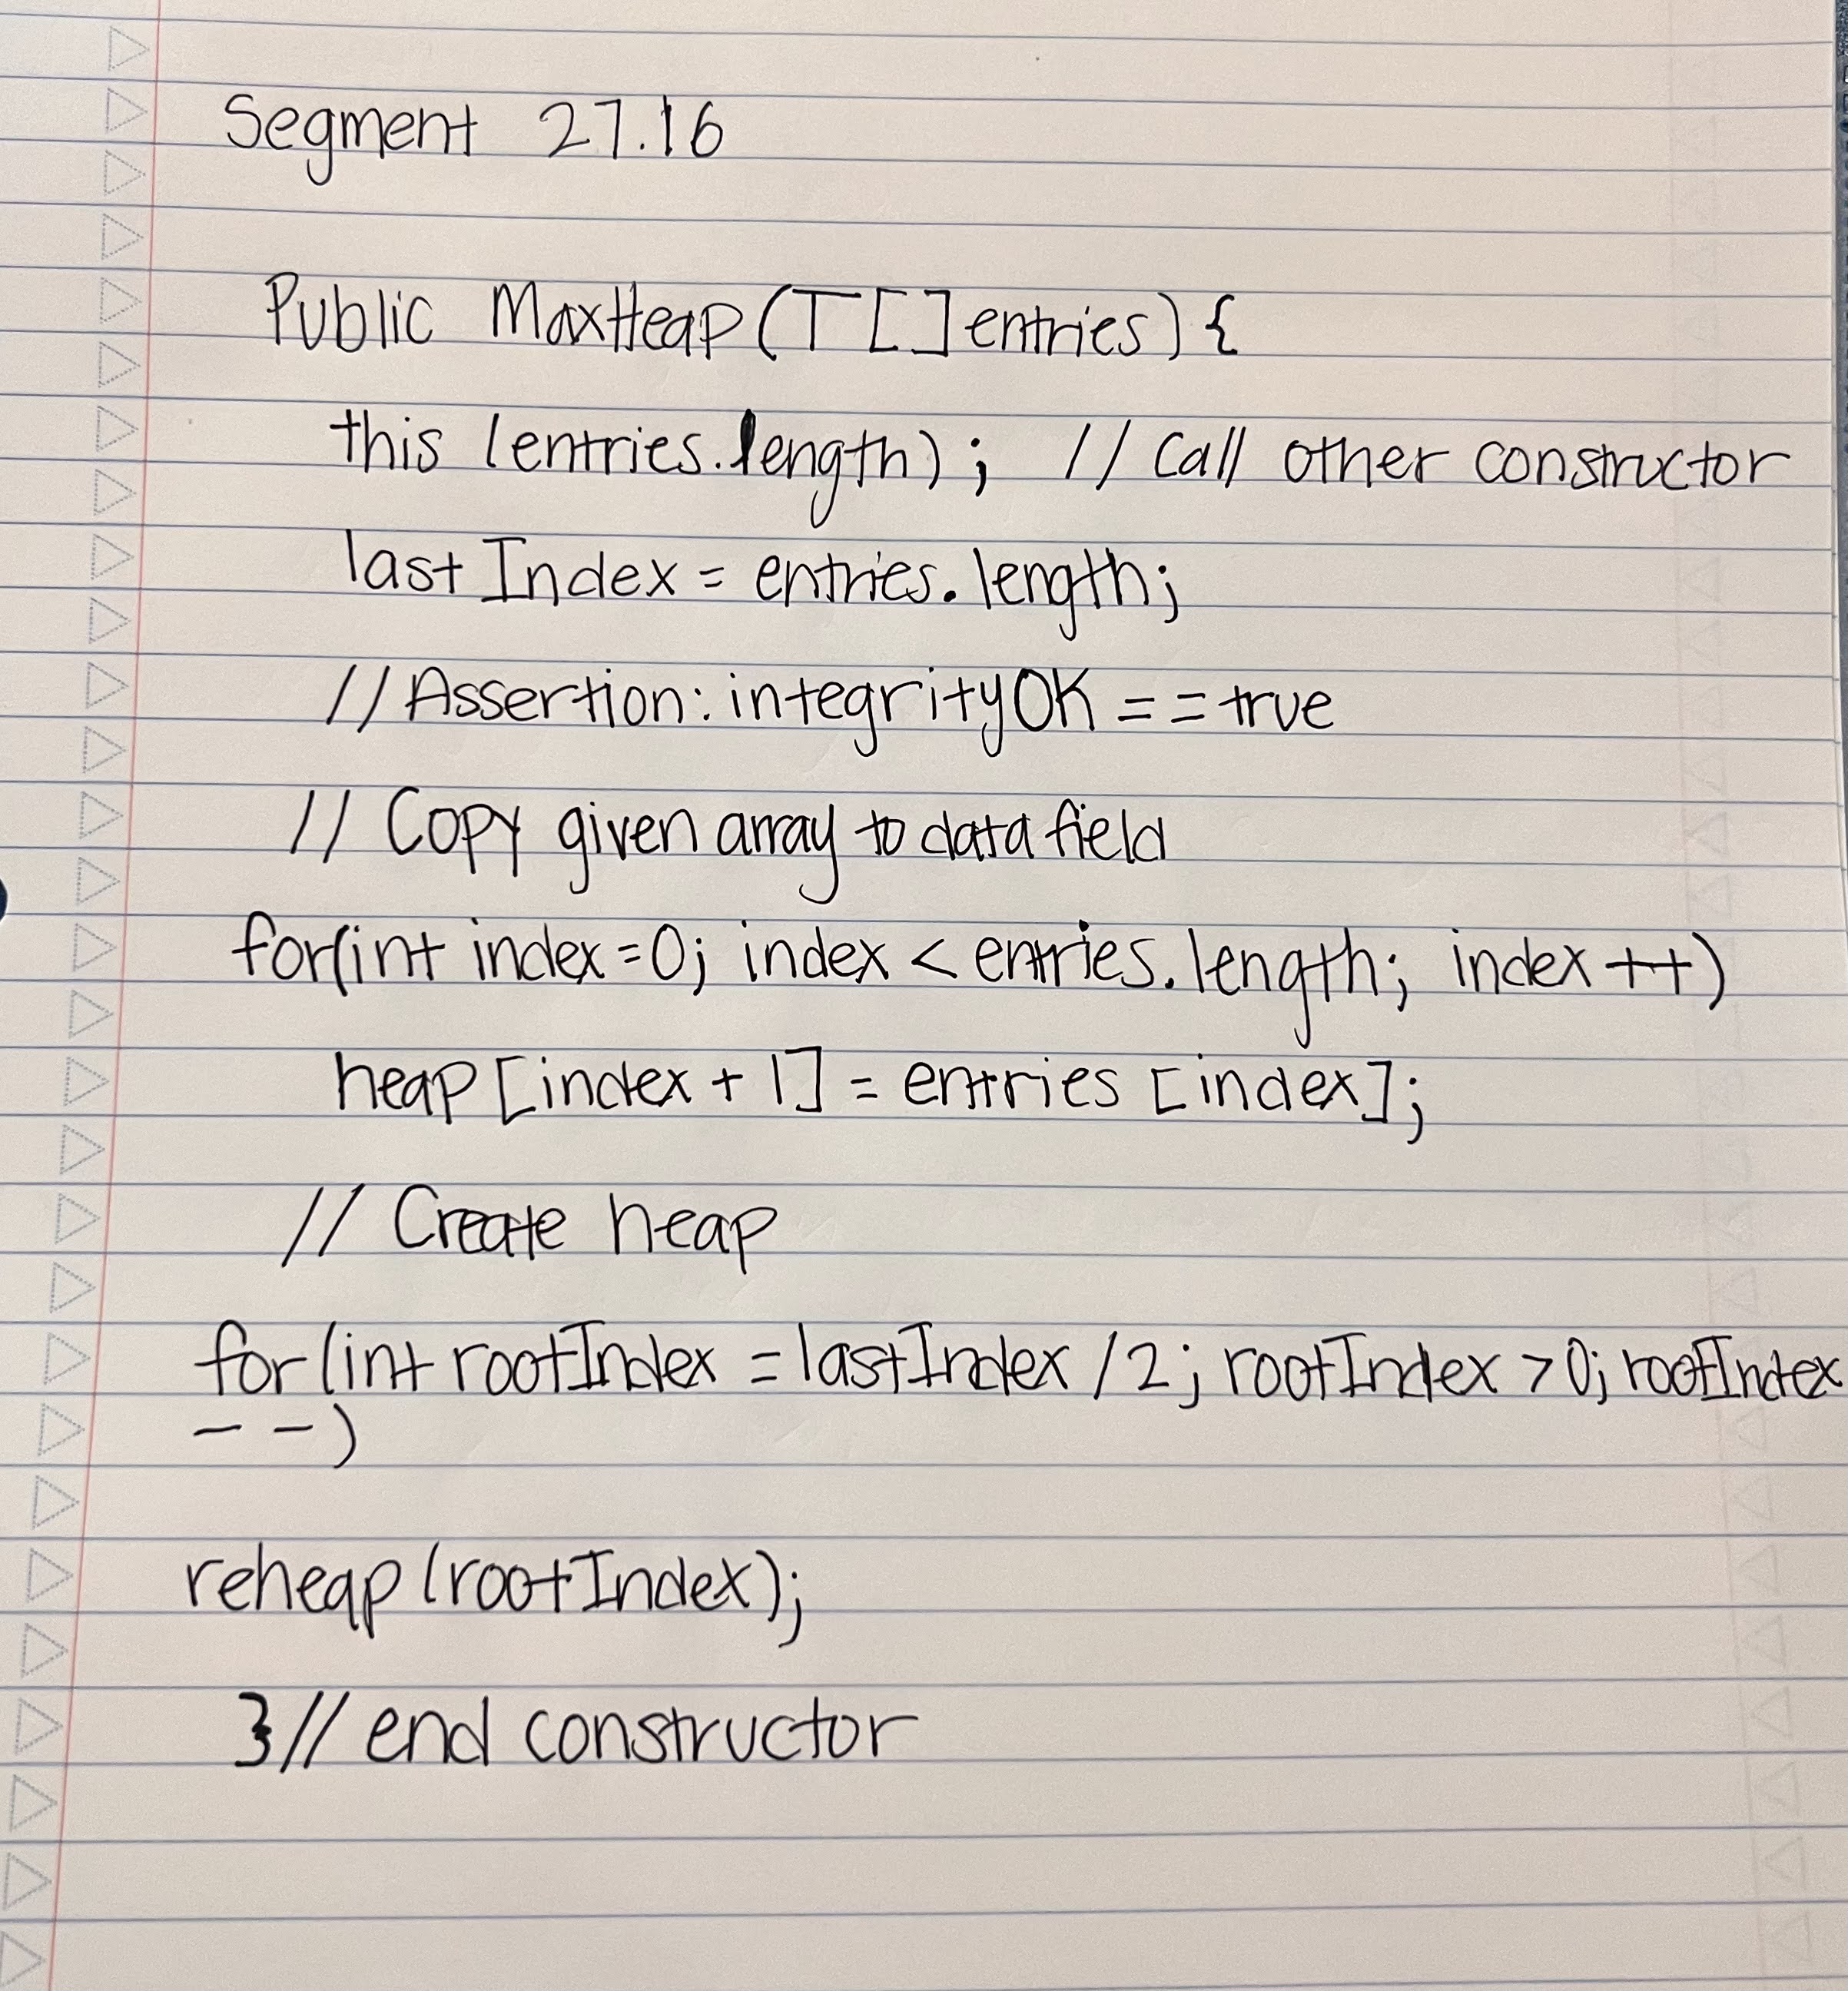 Segment 27.16
Public MaxHeap(T[]entries){
this (entries.length); // Call other constructor
lastIndex = entries.length;
//Assertion: integrityOK == true
// Copy given array to data field
for(int index=0; index < entries.length; index ++)
heap [index + 1] = entries [index];
// Create heap
for (int rootIndex = lastIndex /2; rootIndex >0; rootIndex
--)
reheap (rootIndex);
}// end constructor